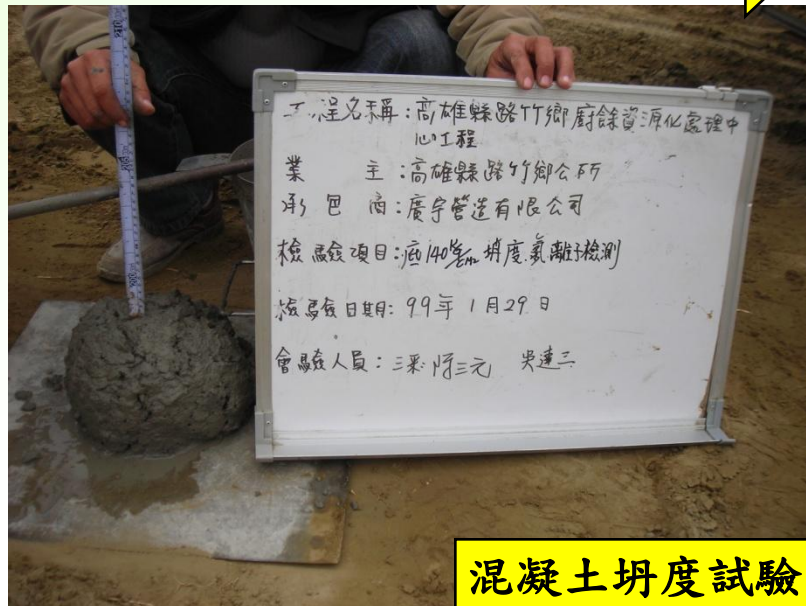 工程名稱:高雄縣路竹鄉廚餘資源化處理中
心工程
業 主:高雄縣路竹鄉公所
承包商:廣宇營造有限公司
檢驗項目:底140kg/cm2 坍度.氯離子檢測
檢驗日期:99年1月29日
會驗人員:三采 陳三元 吳連三
混凝土坍度試驗